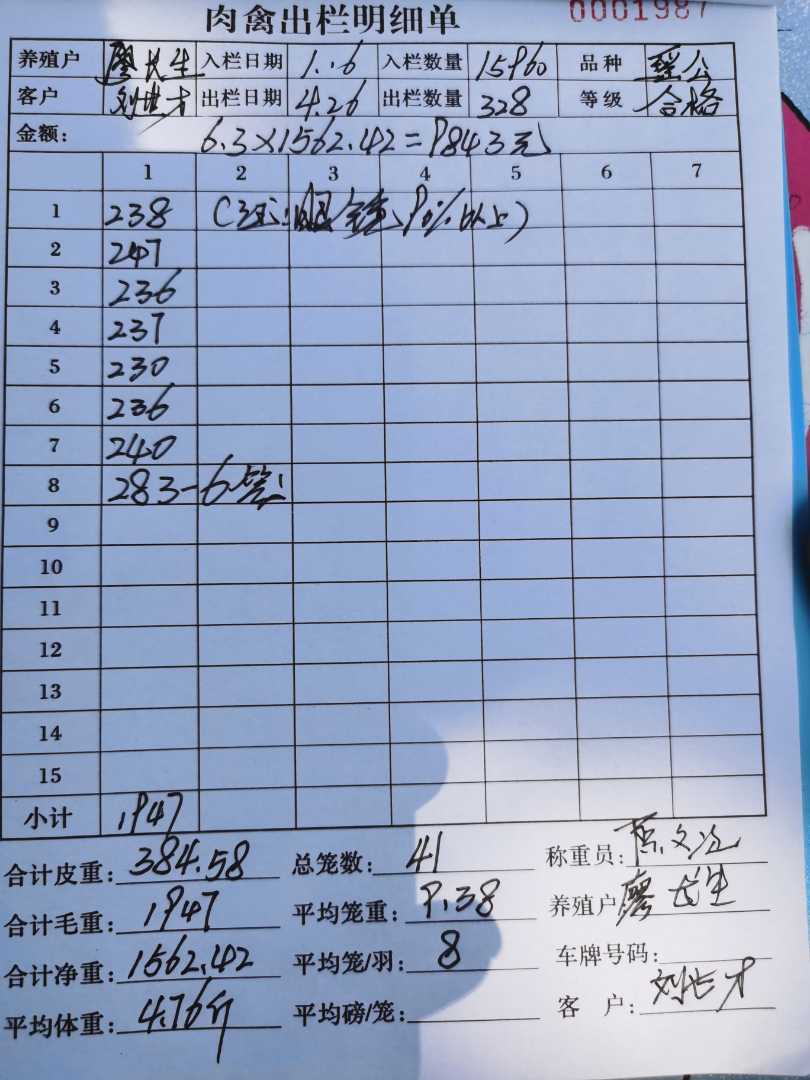 肉禽出栏明细单 0001987
养殖户 廖长生 入栏日期 1.16 入栏数量 15960 品种 瑶公
客户 刘世才 出栏日期 4.26 出栏数量 328 等级 合格
金额: 6.3×1562.42=9843元
1 2 3 4 5 6 7
1 238 90%以上)
2 247
3 236
4 237
5 230
6 236
7 240
8 283-6笼
9
10
11
12
13
14
15
小计 1947
合计皮重: 384.58 总笼数: 41 称重员:
合计毛重: 1947 平均笼重: 9.38 养殖户 廖长生
合计净重: 1562.42 平均笼/羽: 8 车牌号码:
平均体重: 4.76斤 平均磅/笼: 客 户: 刘世才